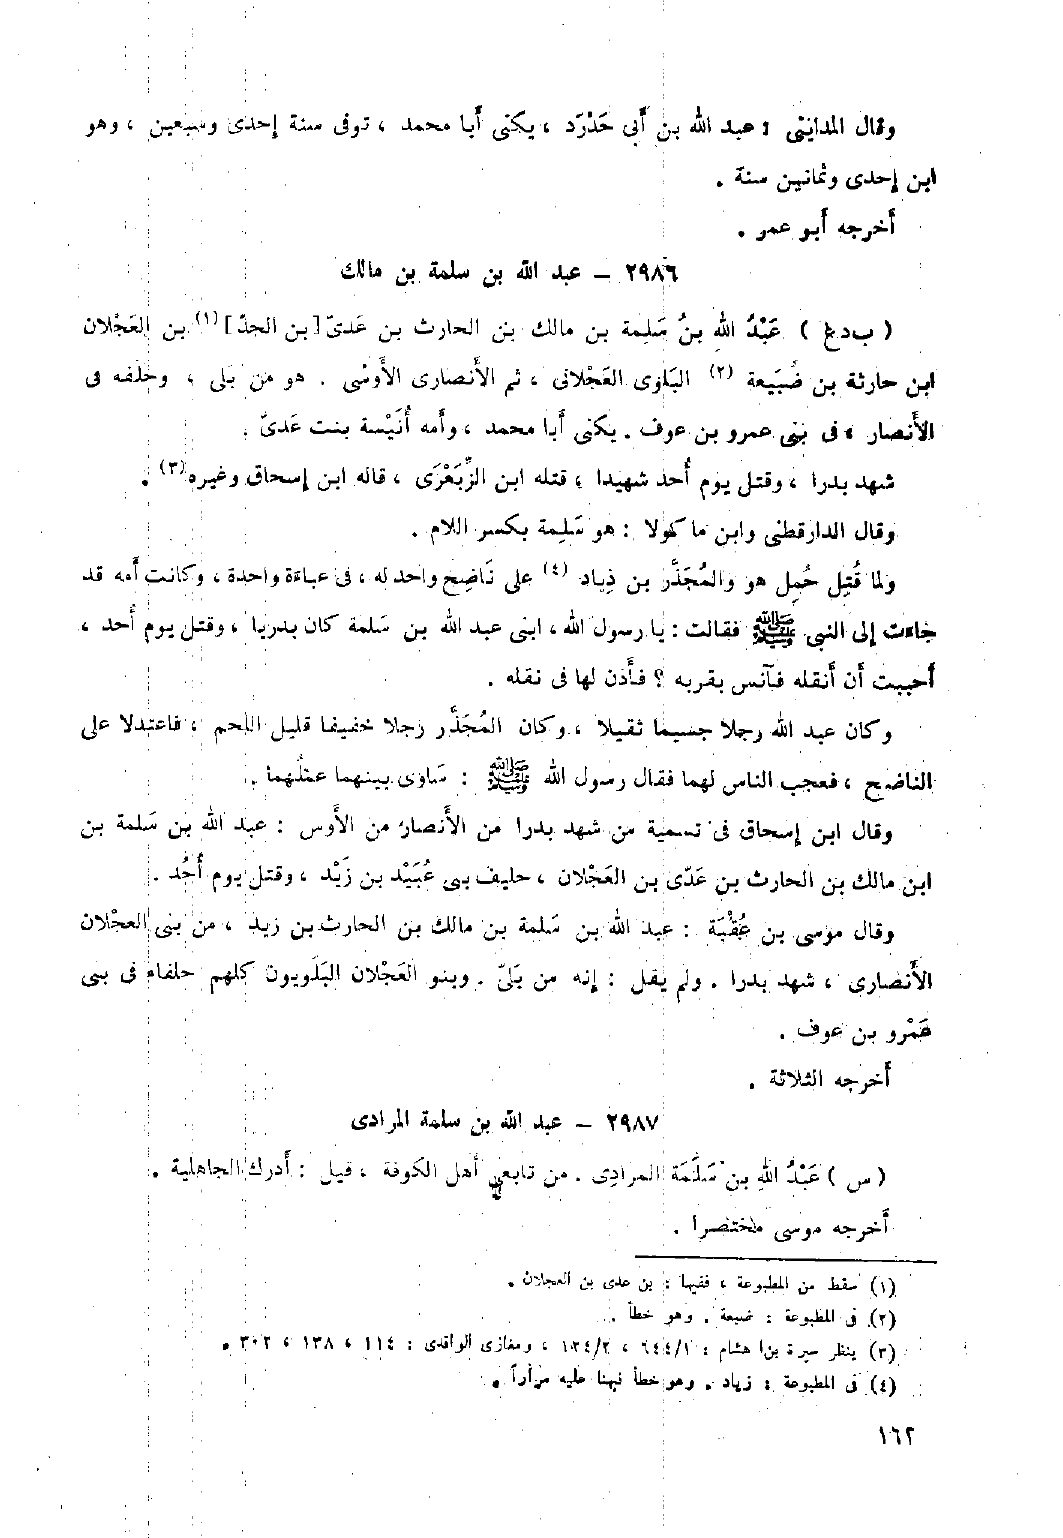 وقال المدايني : عبد الله بن أَبى حَدْرَد ، يكنى أَبا محمد ، توفى سنة إحدى وسبعين ، وهو
ابن إحدى وثمانين سنة .
أَخرجه أَبو عمر .
٢٩٨٦ – عبد الله بن سلمة بن مالك
( ب د ع ) عَبْدُ اللهِ بنُ سَلِمة بن مالك بن الحارث بن عَدىّ [ بن الجدّ ] (١) بن العَجْلان
ابن حارثة بن ضُبَيعة (٢) البَلَوى العَجْلانى ، ثم الأَنصارى الأَوسى . هو من بَلى ، وحلفه فى
الأَنصار ، فى بنى عمرو بن عوف . يكنى أَبا محمد ، وأُمه أُنَيْسة بنت عَدىّ .
شهد بدرا ، وقتل يوم أُحد شهيدا ، قتله ابن الزِّبَعْرَى ، قاله ابن إسحاق وغيره (٣) .
وقال الدارقطنى وابن ماكولا : هو سَلِمة بكسر اللام .
ولما قُتِل حُمِل هو والمُجَذَّر بن ذِياد (٤) على نَاضِح واحد له ، فى عباءَة واحدة ، وكانت أُمه قد
جاءت إلى النبى ﷺ فقالت : يا رسول الله ، ابنى عبد الله بن سَلمة كان بدريا ، وقتل يوم أُحد ،
أَحببت أَن أَنقله فآنس بقربه ؟ فأَذن لها فى نقله .
وكان عبد الله رجلا جسيما ثقيلا ، وكان المُجَذَّر رجلا خفيفا قليل اللحم ، فاعتدلا على
الناضح ، فعجب الناس لهما فقال رسول الله ﷺ : سَاوَى بينهما عملُهما .
وقال ابن إسحاق فى تسمية من شهد بدرا من الأَنصار من الأَوس : عبد الله بن سَلمة بن
ابن مالك بن الحارث بن عَدّى بن العَجْلان ، حليف بنى عُبَيْد بن زَيْد ، وقتل يوم أُحُد .
وقال موسى بن عُقْبَة : عبد الله بن سَلمة بن مالك بن الحارث بن زيد ، من بنى العجْلان
الأَنصارى ، شهد بدرا . ولم يقل : إنه من بَلىّ . وبنو العَجْلان البَلَويون كلهم حلفاء فى بنى
عَمْرو بن عوف .
أَخرجه الثلاثة .
٢٩٨٧ – عبد الله بن سلمة المرادى
( س ) عَبْدُ اللهِ بن سَلَمَة المرادِى . من تابعى أَهل الكوفة ، قيل : أَدرك الجاهلية .
أَخرجه موسى مختصرا .
(١) سقط من المطبوعة ، ففيها : بن عدى بن العجلان .
(٢) فى المطبوعة : ضبعة . وهو خطأ .
(٣) ينظر سيرة بن هشام : ٦٤٤/١ ، ١٢٤/٢ ، ومغازى الواقدى : ١١٤ ، ١٣٨ ، ٣٠٢ .
(٤) فى المطبوعة : زياد . وهو خطأ نبهنا عليه مراراً .
١٦٢